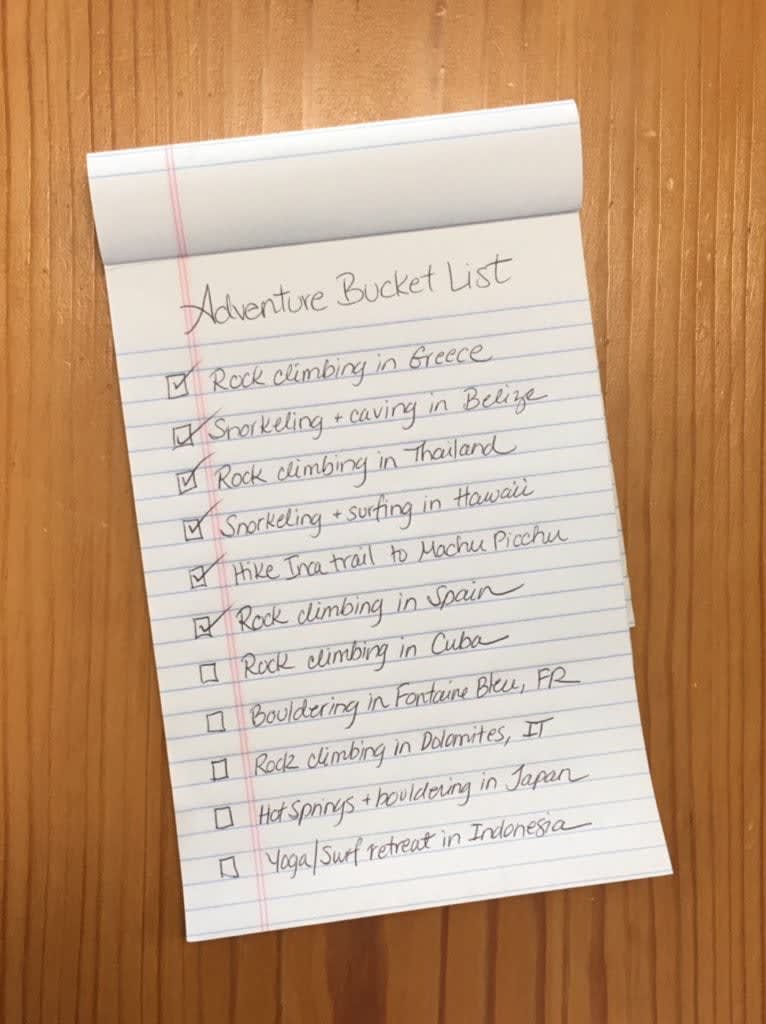 Adventure Bucket List
☑ Rock climbing in Greece
☑ Snorkeling + caving in Belize
☑ Rock climbing in Thailand
☑ Snorkeling + surfing in Hawaii
☑ Hike Inca trail to Machu Picchu
☑ Rock climbing in Spain
☐ Rock climbing in Cuba
☐ Bouldering in Fontaine Bleu, FR
☐ Rock climbing in Dolomites, IT
☐ Hot Springs + bouldering in Japan
☐ Yoga/Surf retreat in Indonesia